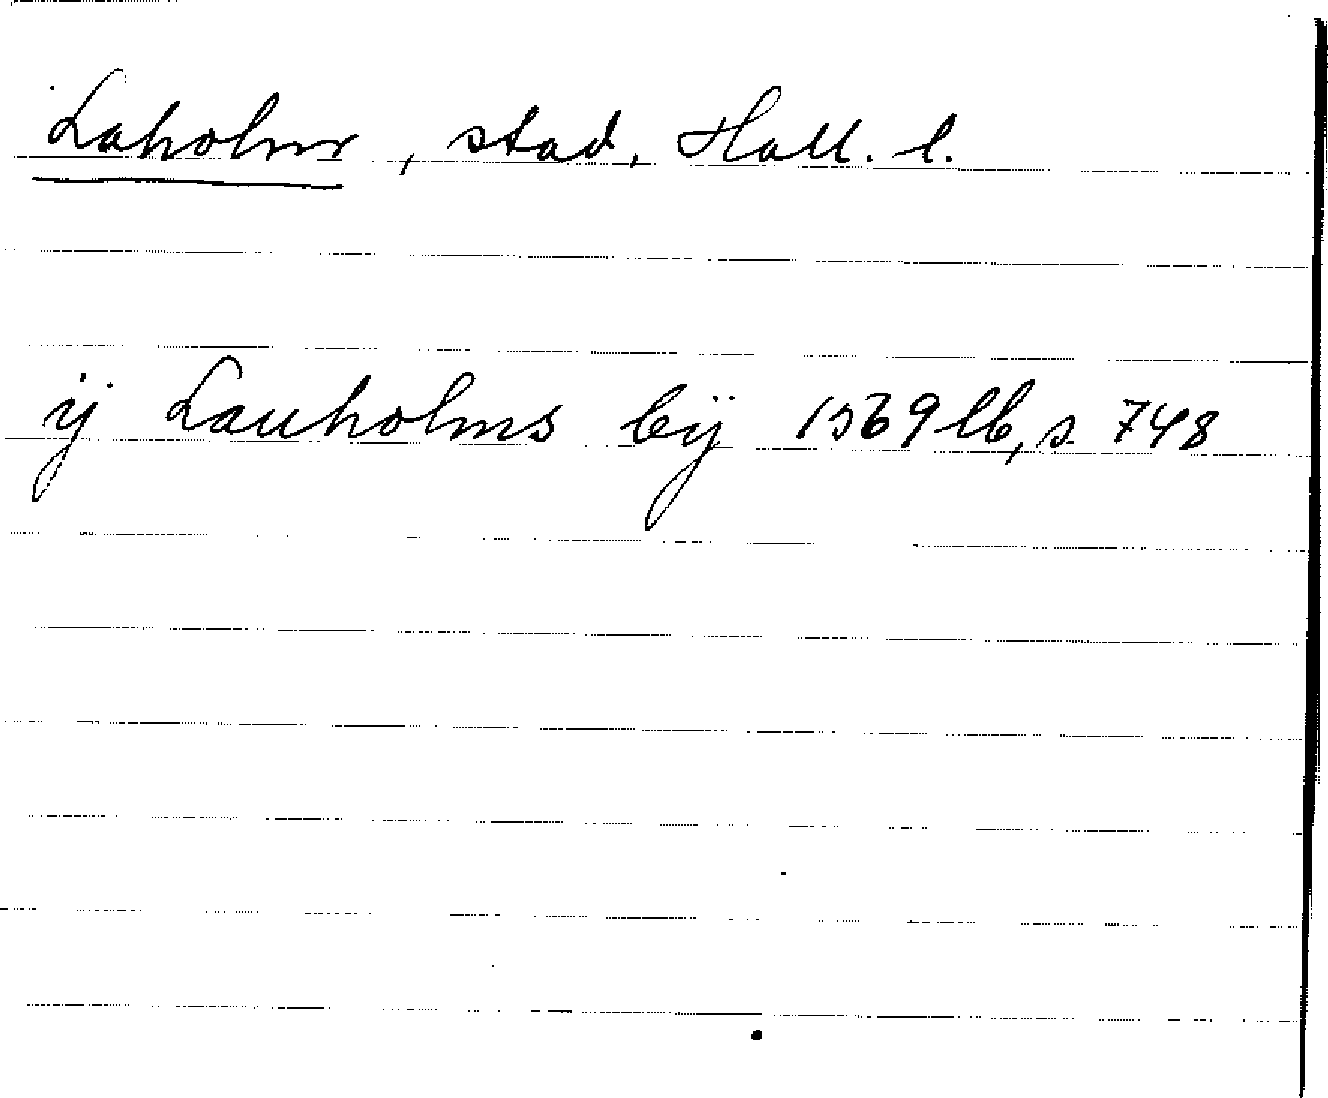 Laholm, stad, Hall. l.
ÿ Lauholms bÿ 1569 lb, s 748